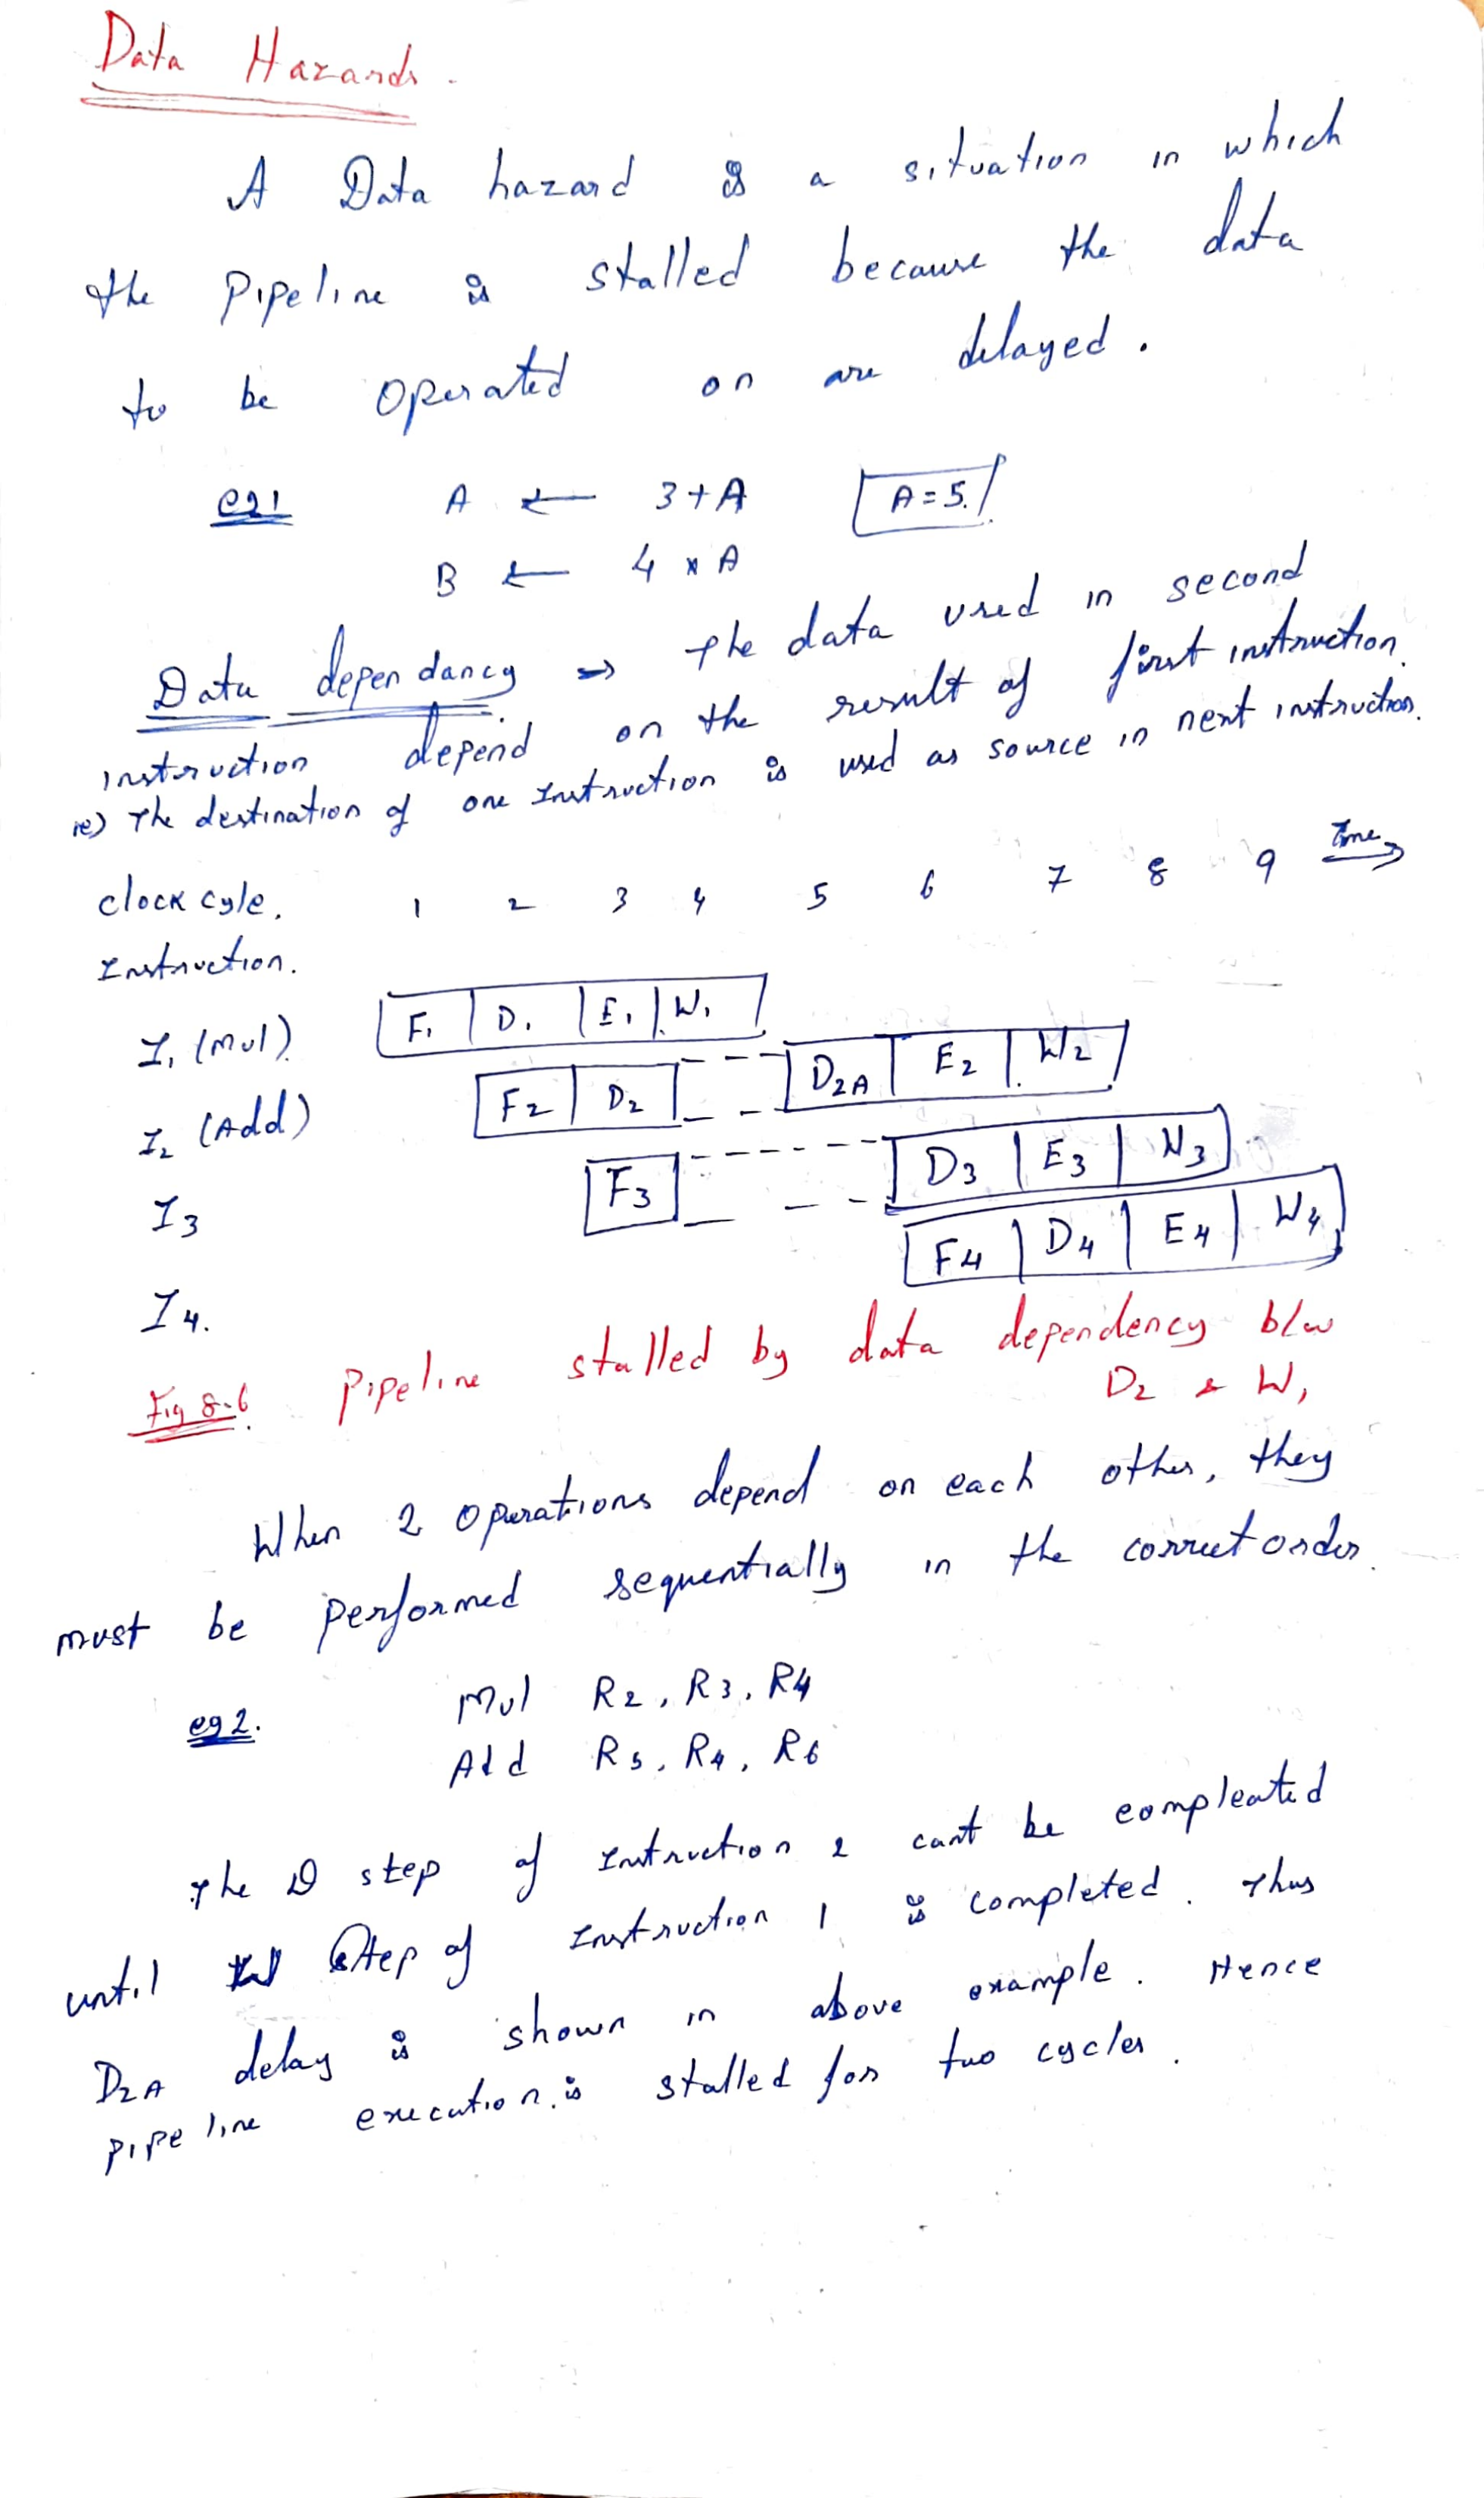 Data Hazards.
A Data hazard is a situation in which
the Pipeline is stalled because the data
to be operated on are delayed.
eg1 A ← 3+A A=5.
B ← 4 x A
Data dependancy → The data used in second
instruction depend on the result of first instruction.
ie) The destination of one Instruction is used as source in next instruction.
clock cyle. 1 2 3 4 5 6 7 8 9 Time
Instruction.
I1 (Mul) F1 D1 E1 W1
I2 (Add) F2 D2 D2A E2 W2
I3 F3 D3 E3 W3
I4. F4 D4 E4 W4
Fig 8.6 Pipeline stalled by data dependency b/w
D2 & W1
When 2 operations depend on each other, they
must be performed sequentially in the correct order.
eg 2. Mul R2, R3, R4
Add R5, R4, R6
The D step of Instruction 2 cant be compleated
until W step of Instruction 1 is completed. Thus
D2A delay is shown in above example. Hence
pipe line execution is stalled for two cycles.